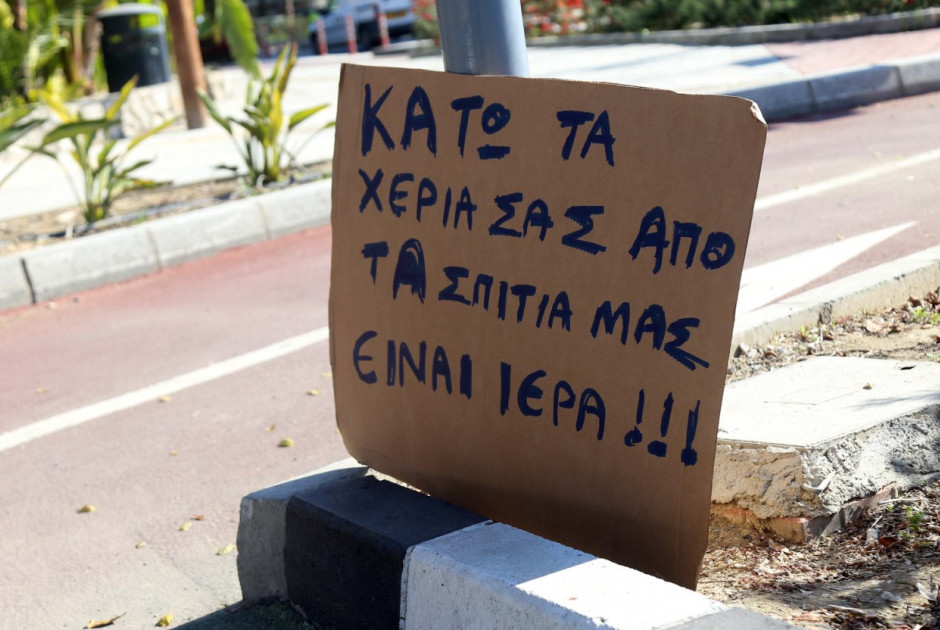 ΚΑΤΩ ΤΑ
ΧΕΡΙΑ ΣΑΣ ΑΠΟ
ΤΑ ΣΠΙΤΙΑ ΜΑΣ
ΕΙΝΑΙ ΙΕΡΑ!!!